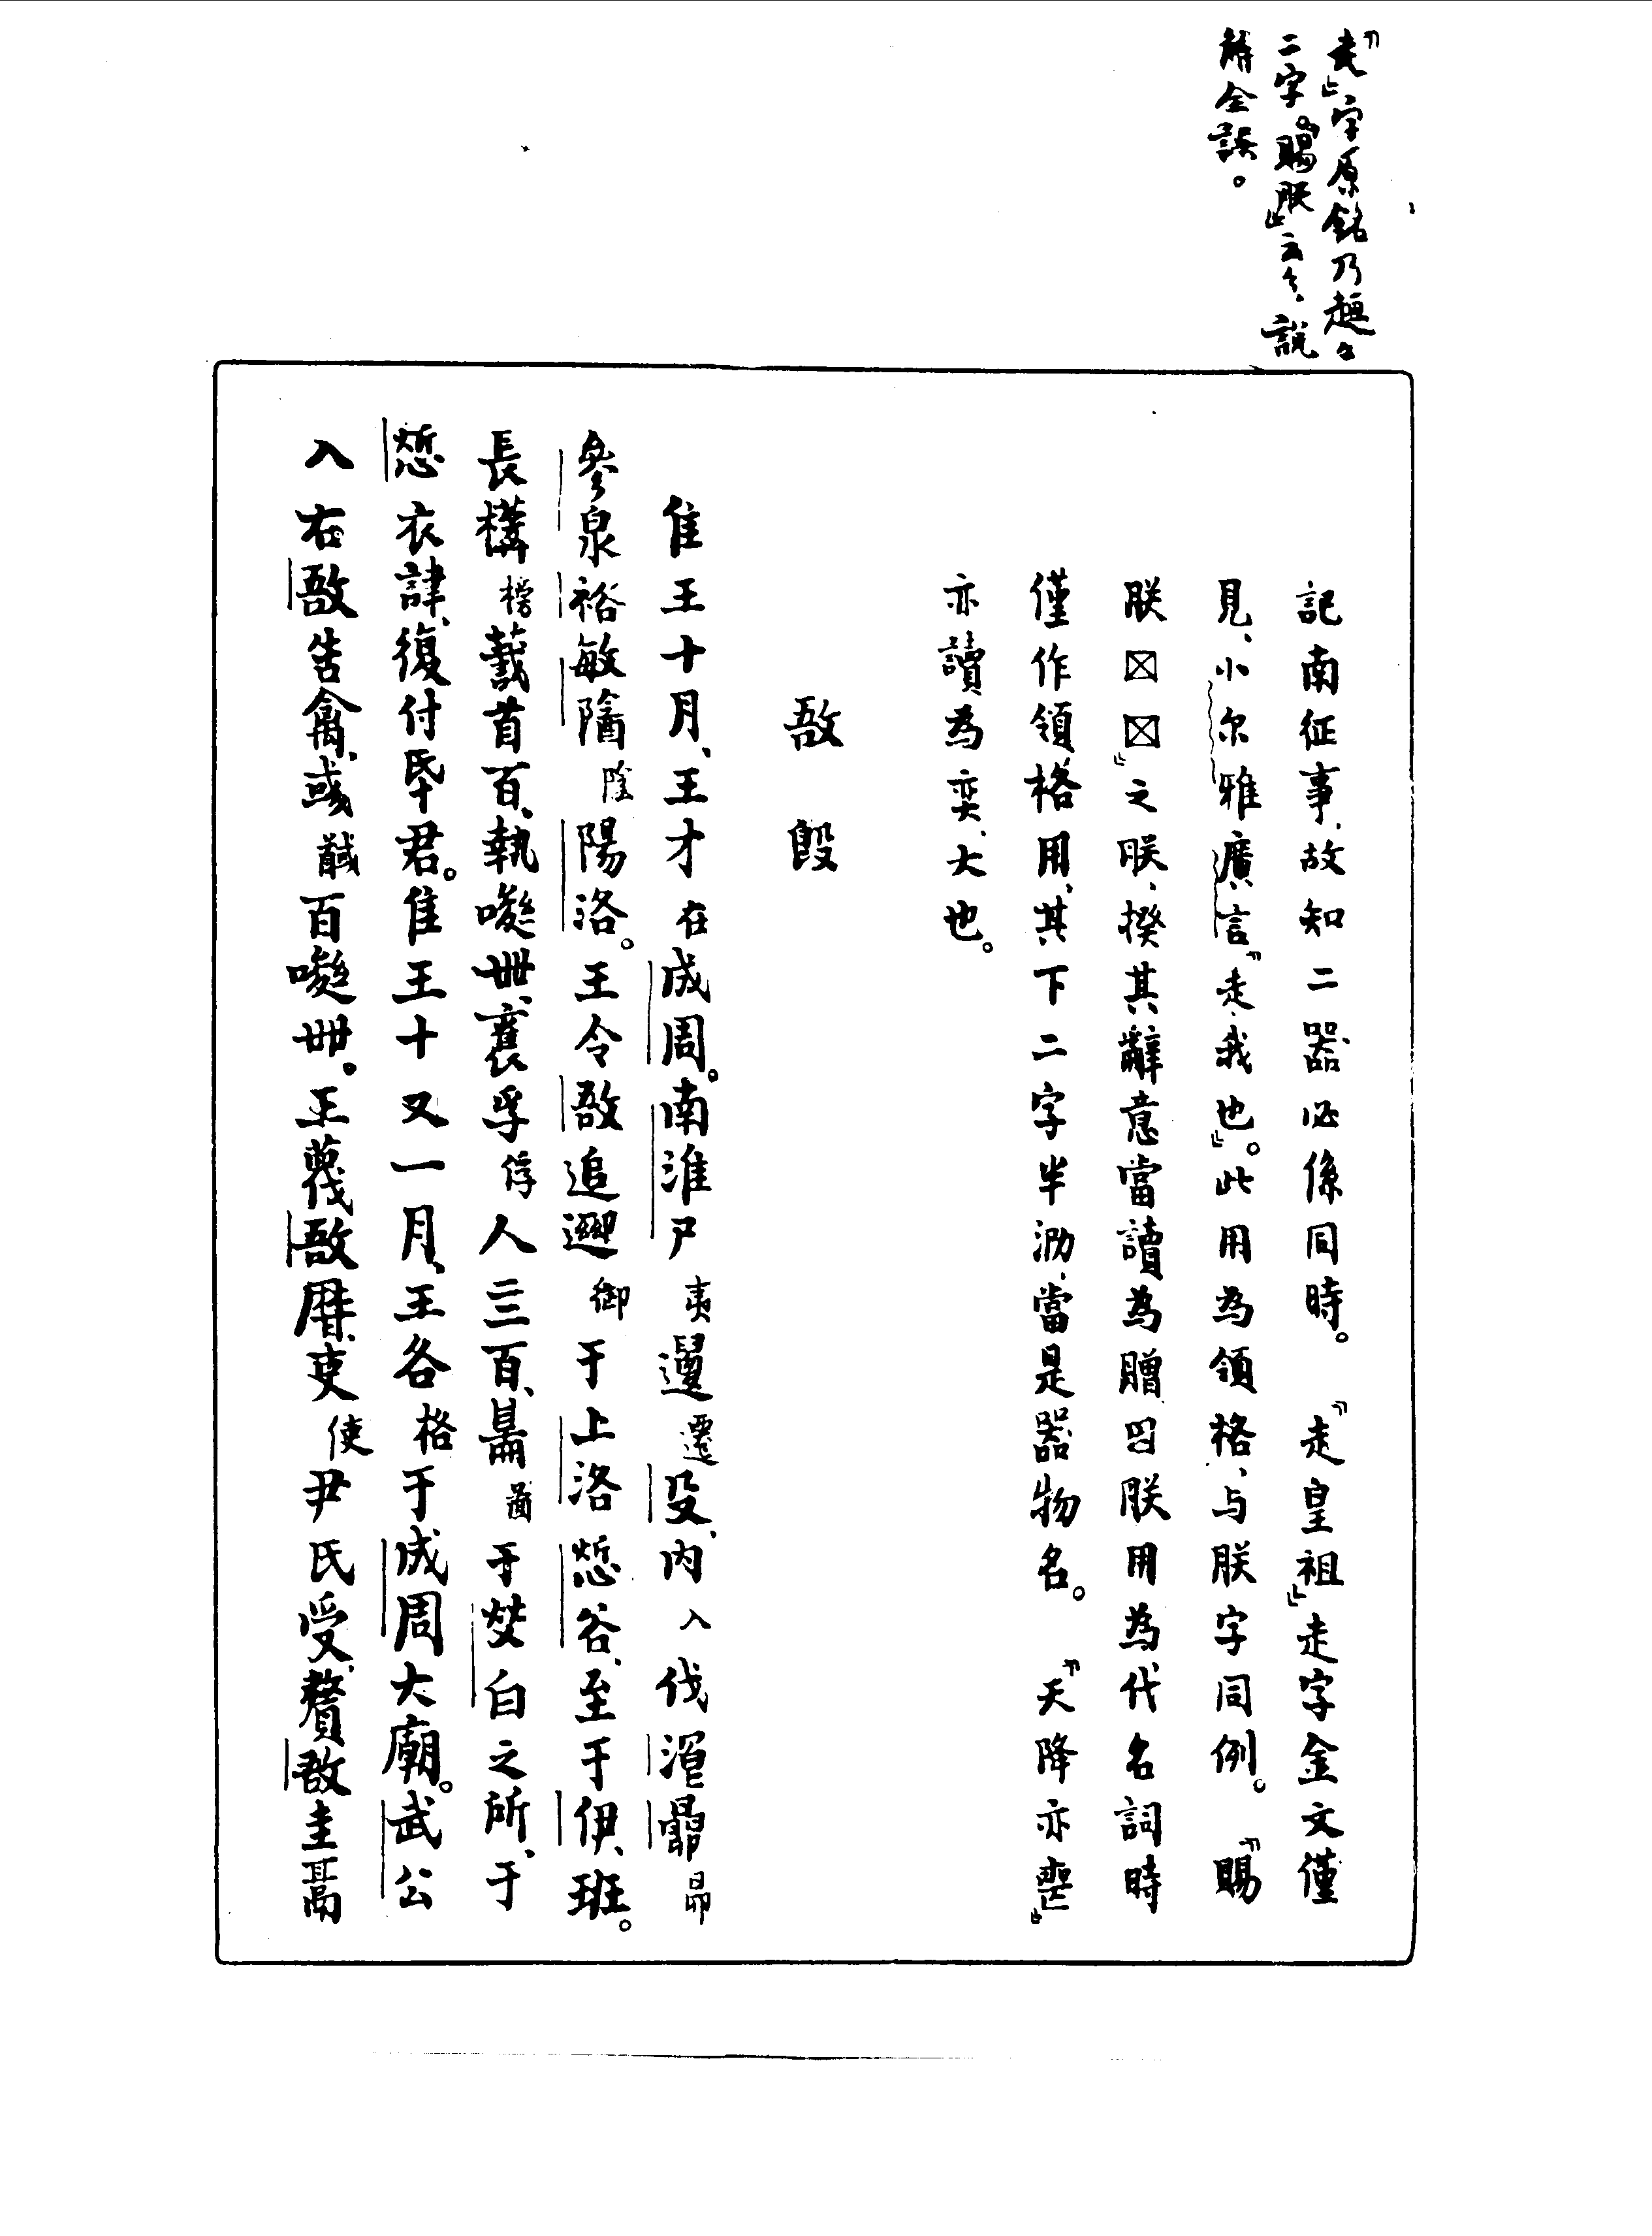 『走』字原銘乃趄々
二字。『賜朕』云々、説
解全誤。
記南征事、故知二器必係同時。　『走皇祖』走字金文僅
見、小尔雅廣言『走、我也』。此用為領格、与朕字同例。　『賜
朕☒☒』之朕、揆其辭意當讀為贈、因朕用為代名詞時
僅作領格用、其下二字半泐、當是器物名。　『天降亦喪』
亦讀為奕、大也。
敔𣪘
隹王十月、王才在成周。南淮尸夷遱遷殳、内入伐洭昴
參泉裕敏陰陰陽洛。王令敔追御于上洛㤴谷、至于伊、班。
長榜㦵首百、執噝卌、襄孚俘人三百、啚于焂白之所、于
㤴衣諱、復付氒君。隹王十又一月、王各格于成周大廟。武公
入右敔告禽、或馘百噝卌。王蔑敔曆、吏使尹氏受、釐敔圭鬲